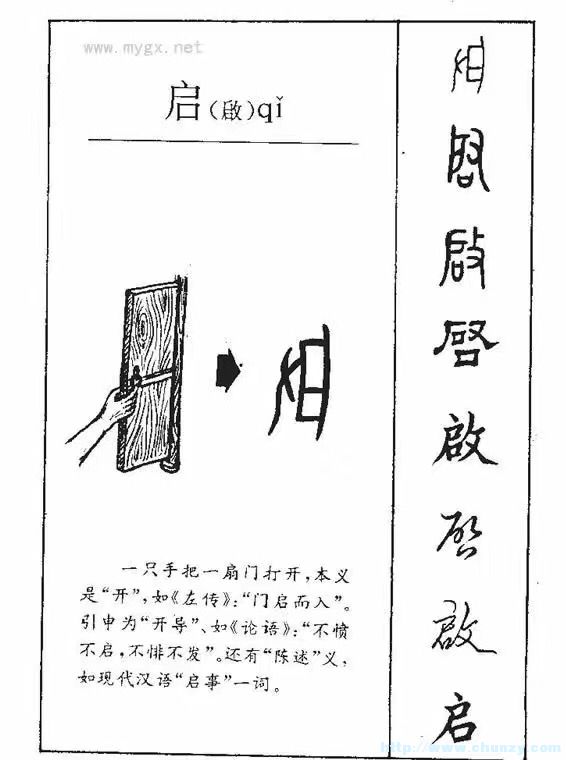 www.mygx.net
启(啟)qǐ
一只手把一扇门打开,本义
是“开”,如《左传》:“门启而入”。
引申为“开导”、如《论语》:“不愤
不启,不悱不发”。还有“陈述”义,
如现代汉语“启事”一词。
啟
启
啟
启
http://www.chunzy.com